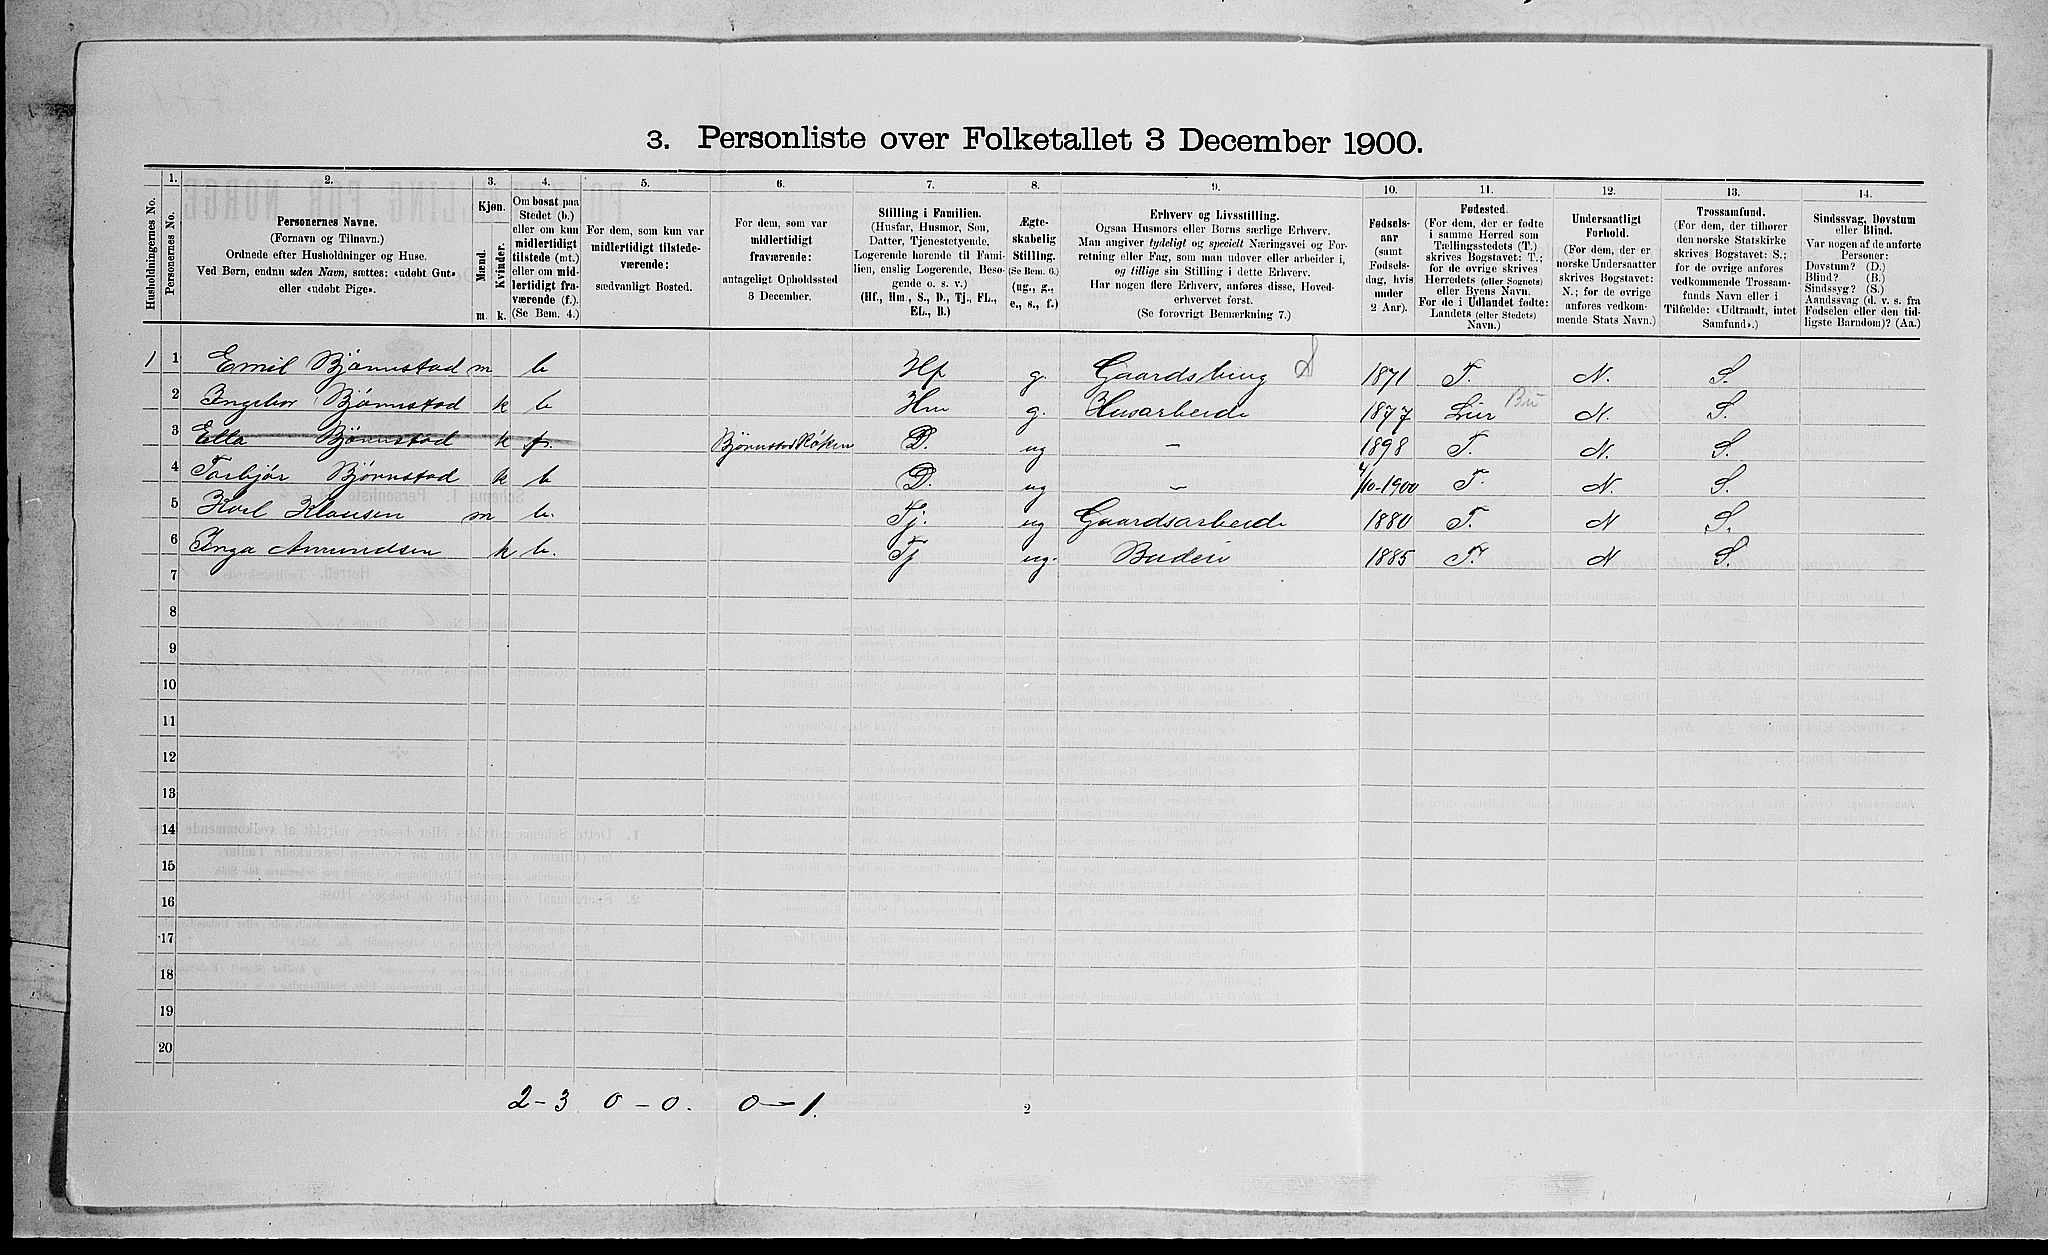 3. Personliste over Folketallet 3 December 1900.
1. 2. 3. 4. 5. 6. 7. 8. 9. 10. 11. 12. 13. 14.
Husholdningernes No.
Personernes No.
Personernes Navne.
(Fornavn og Tilnavn.)
Ordnede efter Husholdninger og Huse.
Ved Børn, endnu uden Navn, sættes: «udøbt Gut»
eller «udøbt Pige».
Kjøn.
Mænd.
Kvinder.
m. k.
Om bosat paa
Stedet (b.)
eller om kun
midlertidigt
tilstede (mt.)
eller om mid-
lertidigt fra-
værende (f.).
(Se Bem. 4.)
For dem, som kun var
midlertidigt tilstede-
værende:
sædvanligt Bosted.
For dem, som var
midlertidigt
fraværende:
antageligt Opholdssted
3 December.
Stilling i Familien.
(Husfar, Husmor, Søn,
Datter, Tjenestetyende,
Logerende hørende til Fami-
lien, enslig Logerende, Besø-
gende o. s. v.)
(Hf., Hm., S., D., Tj., FL.,
EL., B.)
Ægte-
skabelig
Stilling.
(Se Bem. 6.)
(ug., g.,
e., s., f.)
Erhverv og Livsstilling.
Ogsaa Husmors eller Børns særlige Erhverv.
Man angiver tydeligt og specielt Næringsvei og For-
retning eller Fag, som man udøver eller arbeider i,
og tillige sin Stilling i dette Erhverv.
Har nogen flere Erhverv, anføres disse, Hoved-
erhvervet først.
(Se forøvrigt Bemærkning 7.)
Fødsels-
aar
(samt
Fødsels-
dag, hvis
under
2 Aar).
Fødested.
(For dem, der er fødte
i samme Herred som
Tællingsstedets (T.)
skrives Bogstavet: T.;
for de øvrige skrives
Herredets (eller Sognets)
eller Byens Navn.
For de i Udlandet fødte:
Landets (eller Stedets)
Navn.)
Undersaatligt
Forhold.
(For dem, der er
norske Undersaatter
skrives Bogstavet:
N.; for de øvrige
anføres vedkom-
mende Stats Navn.)
Trossamfund.
(For dem, der tilhører
den norske Statskirke
skrives Bogstavet: S.;
for de øvrige anføres
vedkommende Trossam-
funds Navn eller i
Tilfælde: «Udtraadt, intet
Samfund».)
Sindssvag, Døvstum
eller Blind.
Var nogen af de anførte
Personer:
Døvstum? (D.)
Blind? (B.)
Sindssyg? (S.)
Aandssvag (d. v. s. fra
Fødselen eller den tid-
ligste Barndom)? (Aa.)
1 1 Emil Bjørnstad m b Hf g. Gaardsbrug 1871 T. N. S.
2 Ingebor Bjørnstad k b Hm g. Husarbeide 1877 Lier Bu N. S.
3 Ella Bjørnstad k f. Bjørnstad Røken D. ug - 1898 T. N. S.
4 Torbjør Bjørnstad k b D. ug - 4/10-1900 T. N. S.
5 Karl Klausen m b. Tj. ug Gaardsarbeide 1880 T. N S.
6 Inga Amundsen k b. Tj ug. Budeie 1885 T. N S.
7
8
9
10
11
12
13
14
15
16
17
18
19
20
2-3 0-0. 0-1.
2